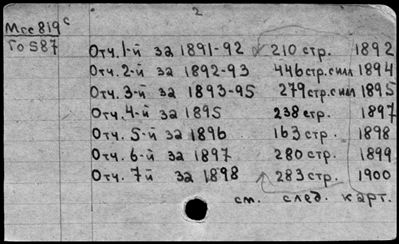 2
Мсе 819 с
Го S87
Отч. 1-й за 1891-92 210 стр. 1892
Отч. 2-й за 1892-93 446 стр. с илл 1894
Отч. 3-й за 1893-95 279 стр. с илл 1895
Отч. 4-й за 1895 238 стр. 1897
Отч. 5-й за 1896 163 стр. 1898
Отч. 6-й за 1897 280 стр. 1899
Отч. 7й за 1898 283 стр. 1900
см. след. карт.